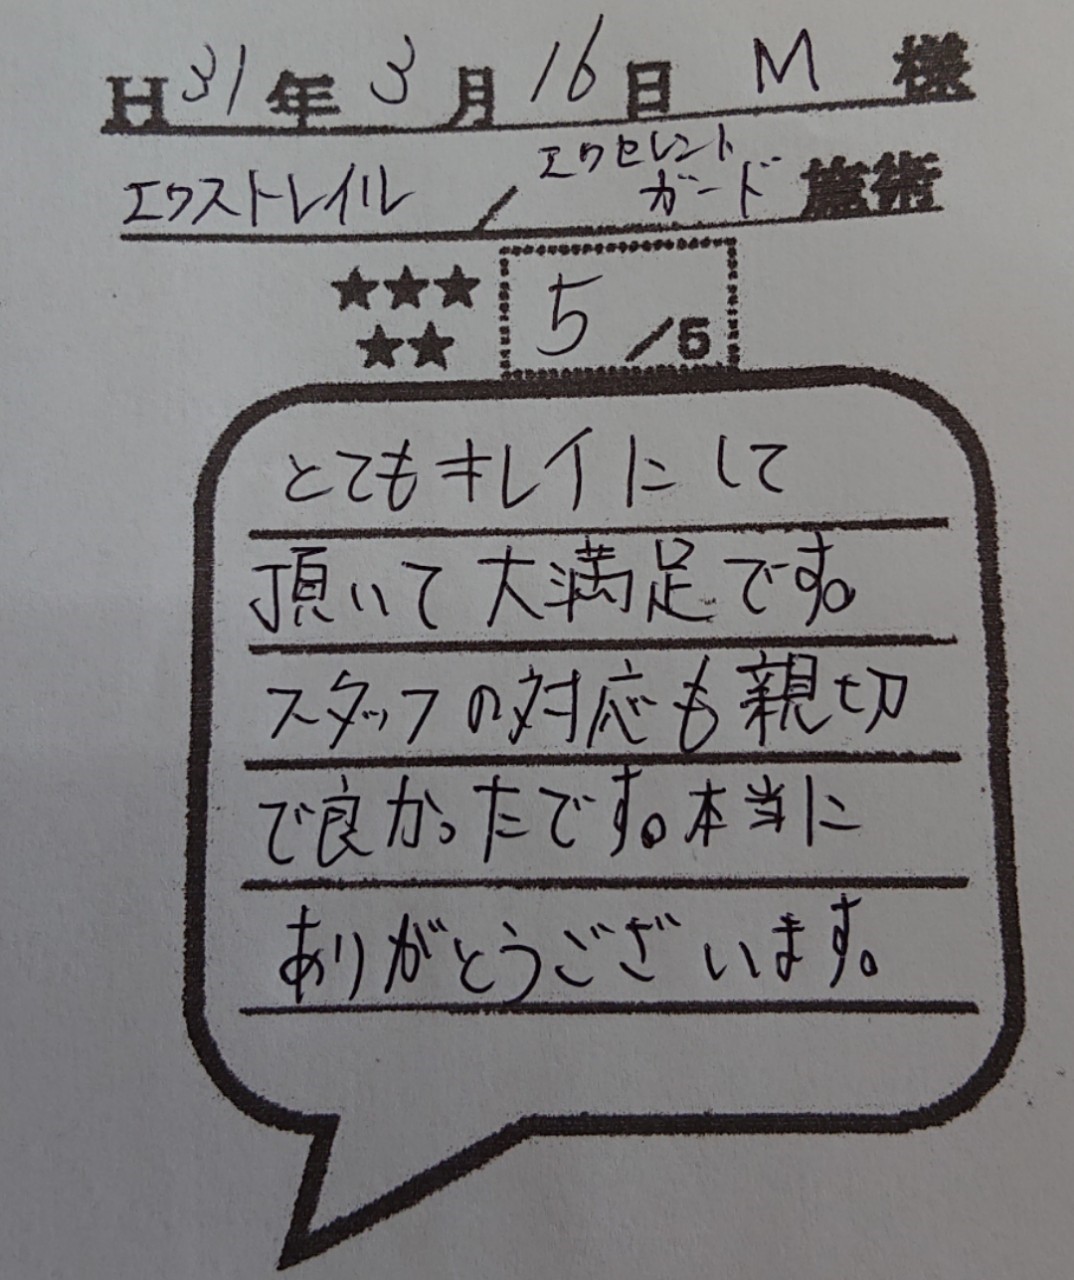 H31年3月16日 M 様
エクストレイル / エクセレントガード 施術
★★★
★★ 5/5
とてもキレイにして
頂いて大満足です。
スタッフの対応も親切
で良かったです。本当に
ありがとうございます。